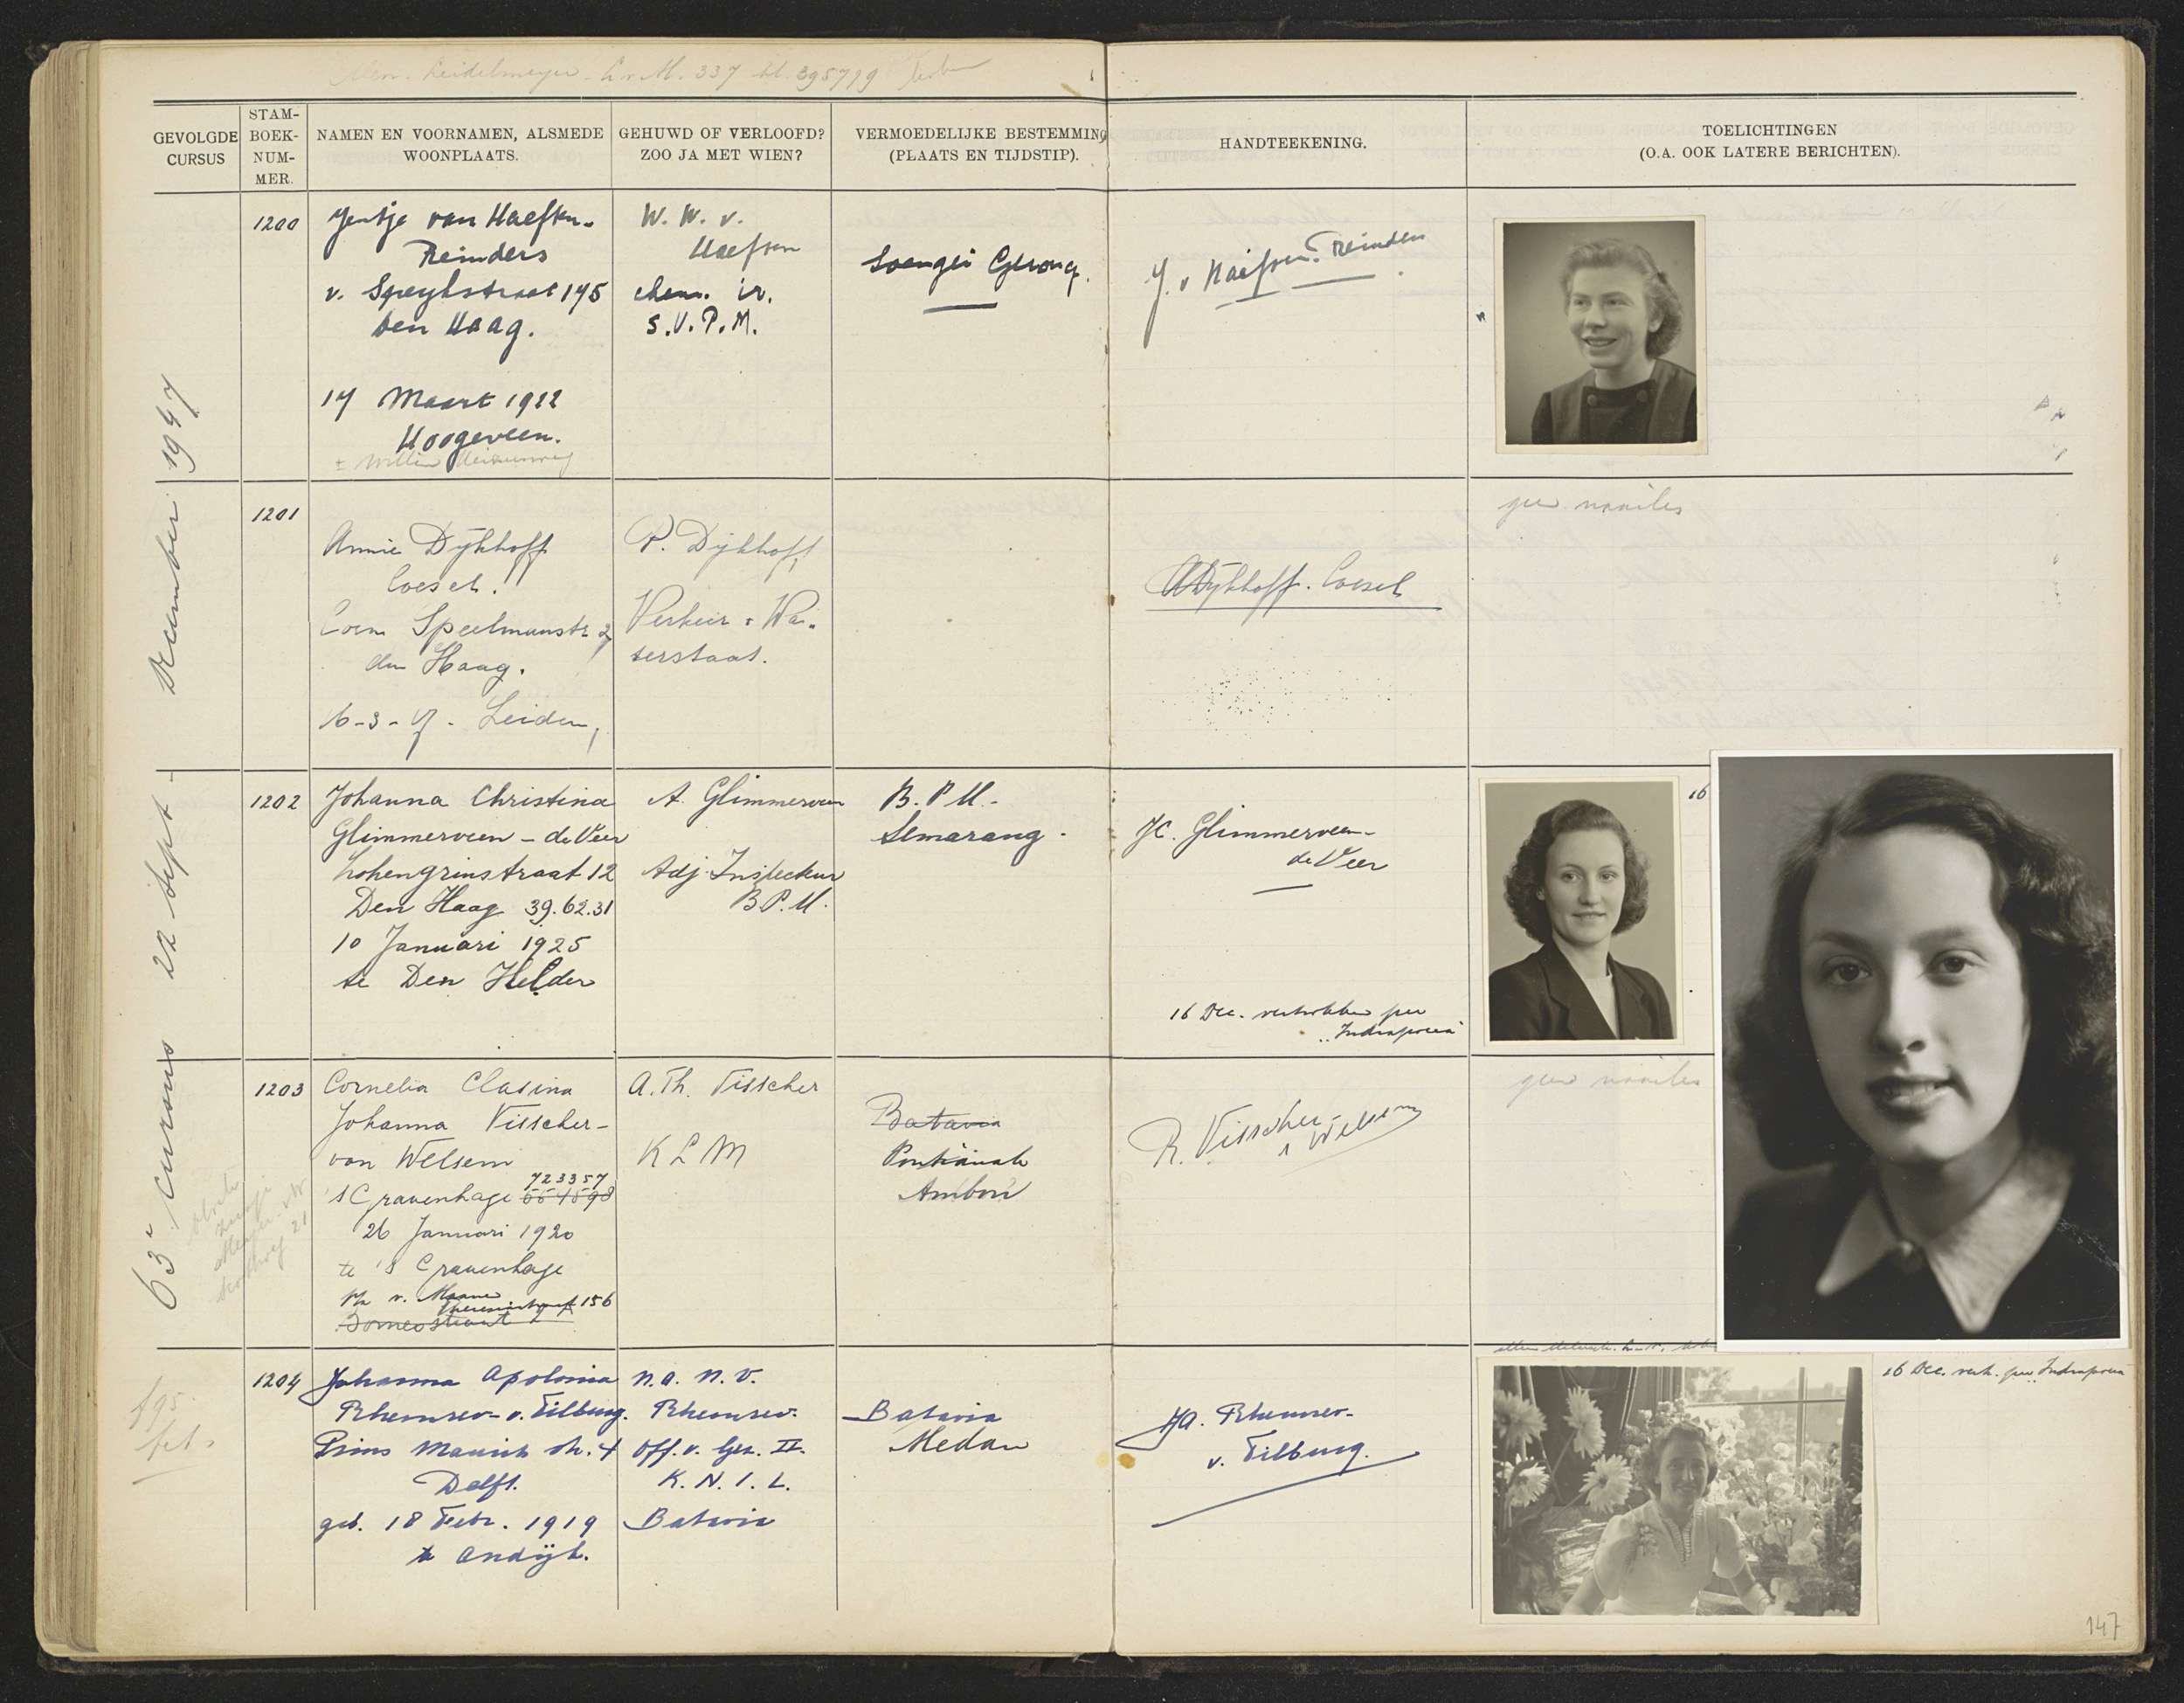 337 395719
GEVOLGDE CURSUS
STAM-BOEK-NUM-MER.
NAMEN EN VOORNAMEN, ALSMEDE WOONPLAATS.
GEHUWD OF VERLOOFD? ZOO JA MET WIEN?
VERMOEDELIJKE BESTEMMING (PLAATS EN TIJDSTIP).
HANDTEEKENING.
TOELICHTINGEN
(O.A. OOK LATERE BERICHTEN).
63e Cursus 22 Sept - December 1947
1200
Jentje van Haeften-
Reinders
v. Speykstraat 175
Den Haag.
17 Maart 1922
Hoogeveen.
W. W. v.
Haeften
chem. ir.
S.V.P.M.
Soengei Gerong.
J. v Haeften-Reinders
1201
Annie Dijkhoff
Coesel.
Coen Speelmanstr
den Haag.
16-3-17. Leiden,
P. Dijkhoff,
Verkeer + Wa-
terstaat.
ADijkhoff. Coesel
1202
Johanna Christina
Glimmerveen - de Veer
Lohengrinstraat 12
Den Haag 39.62.31
10 Januari 1925
te Den Helder
A. Glimmerveen
Adj. Inspecteur
B.P.M.
B.P.M.
Semarang.
JC. Glimmerveen-
de Veer
16 Dec. vertrokken per
"Indrapoera"
16
1203
Cornelia Clasina
Johanna Visscher-
van Welsem
723357
's Gravenhage
26 Januari 1920
te 's Gravenhage
156
Borneostraat
A.Th. Visscher
KLM
Batavia
Pontianak
Ambon
R. Visscher-v Welsem
1204
Johanna Apolonia
Rhemrev-v. Tilburg.
Prins Maurits str. 4
Delft.
geb. 18 Febr. 1919
te Andijk.
N.A.N.V.
Rhemrev.
Off. v. Gez. II.
K.N.I.L.
Batavia
Batavia
Medan
JA. Rhemrev-
v. Tilburg.
16 Dec. vertr. per "Indrapoera"
147